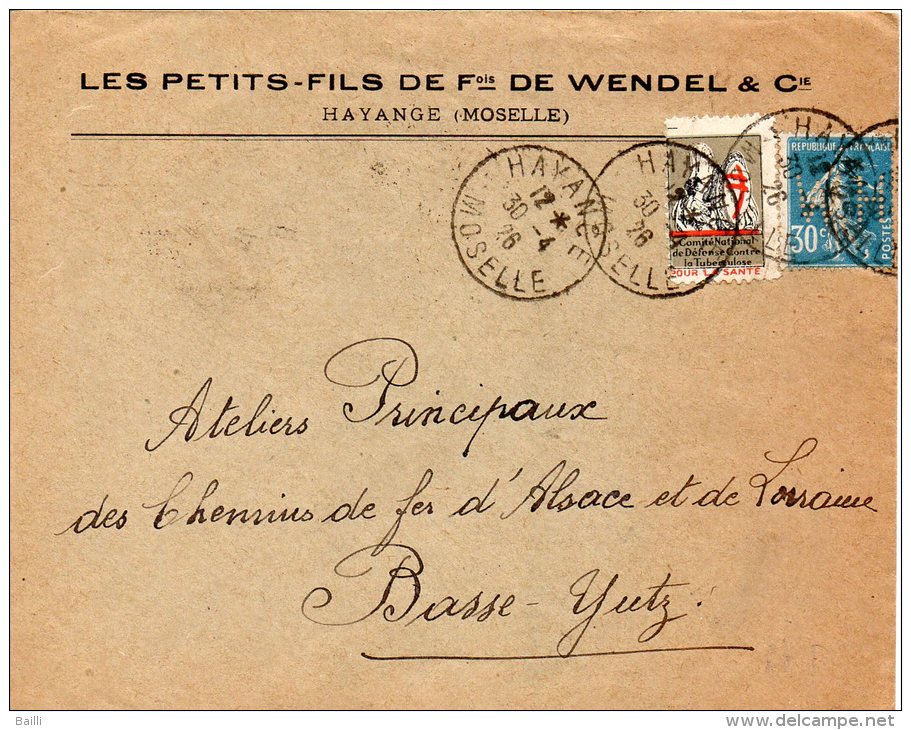 LES PETITS-FILS DE Fois DE WENDEL & CIE
HAYANGE (MOSELLE)
HAYANGE
12 *
30 -4
26
MOSELLE
HAYANGE
30
26
MOSELLE
Comité National
de Défense Contre
la Tuberculose
POUR LA SANTÉ
REPUBLIQUE FRANÇAISE
30c
POSTES
Ateliers Principaux
des Chemins de fer d'Alsace et de Lorraine
Basse-Yutz.
Bailli
www.delcampe.net